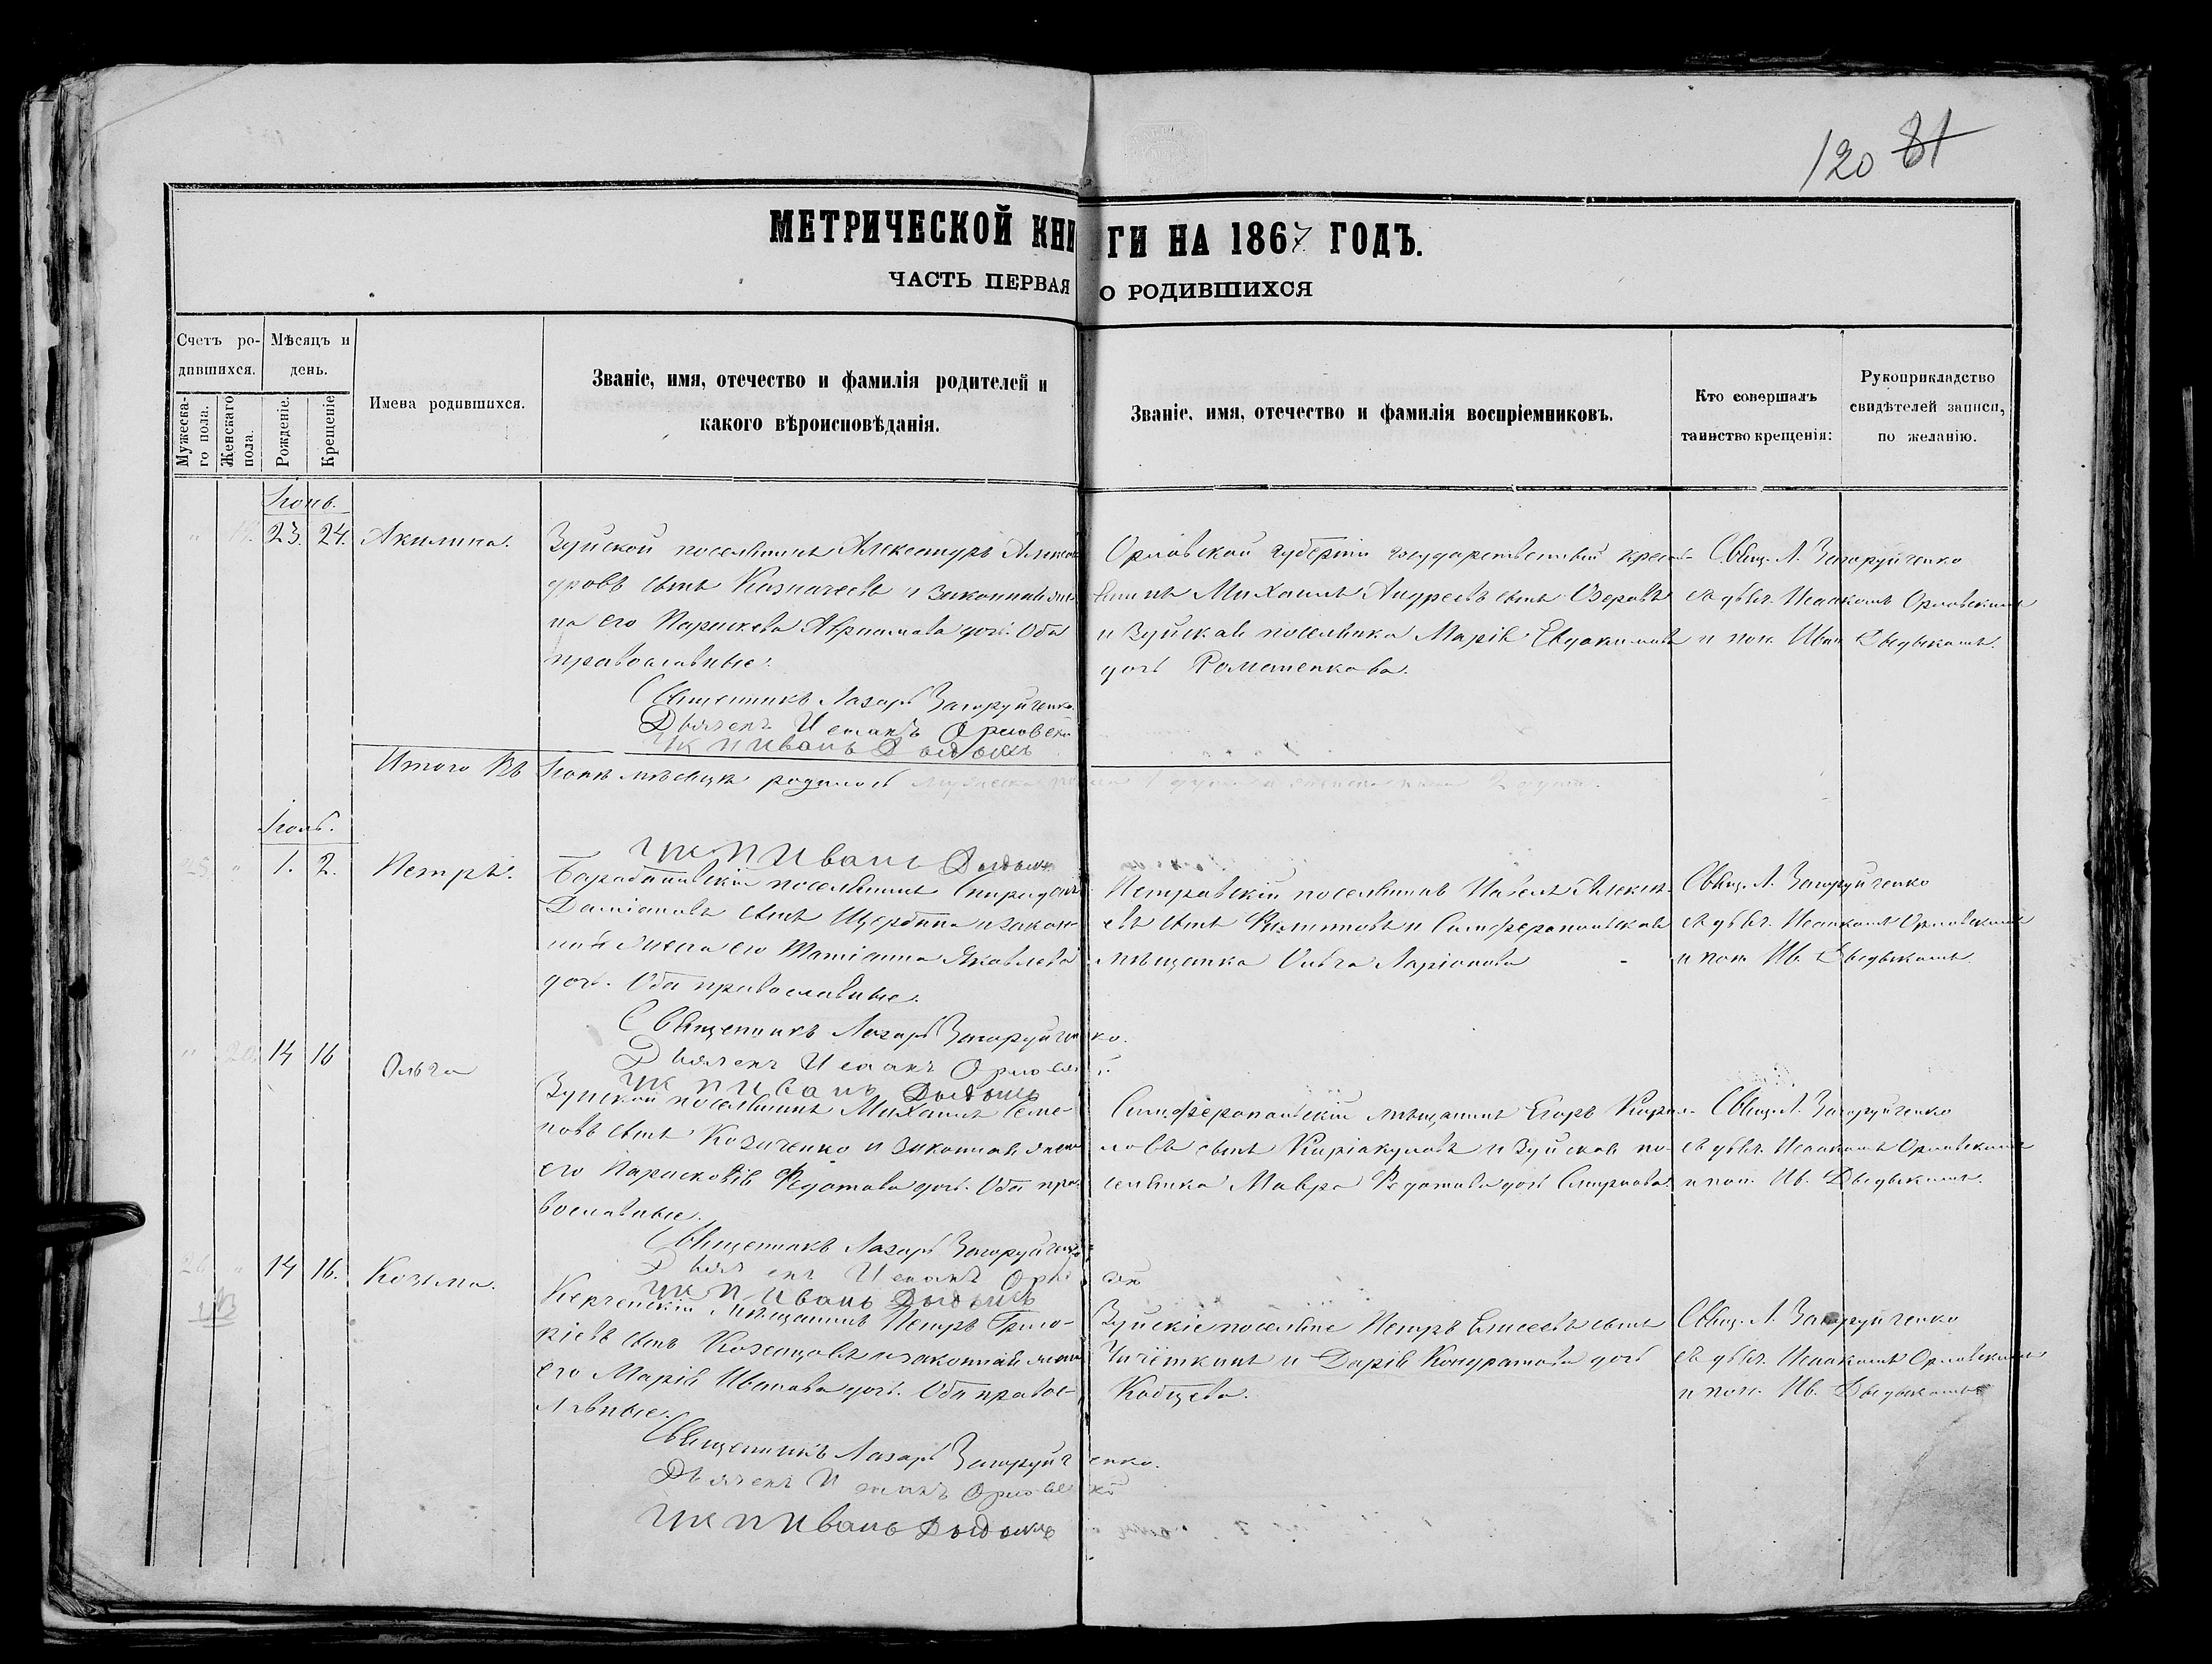 120 81
МЕТРИЧЕСКОЙ КНИГИ НА 1867 ГОДЪ.
ЧАСТЬ ПЕРВАЯ О РОДИВШИХСЯ
Счетъ ро-
дившихся.
Мужеска-
го пола.
Женскаго
пола.
Мѣсяцъ и
день.
Рожденіе.
Крещеніе
Имена родившихся.
Званіе, имя, отечество и фамилія родителей и
какого вѣроисповѣданія.
Званіе, имя, отечество и фамилія воспріемниковъ.
Кто совершалъ
таинство крещенія:
Рукоприкладство
свидѣтелей записи,
по желанію.
Іюнь.
23. 24. Акилина.
Зуйской поселянинъ Александръ Алексан
дровъ сынъ Казначеевъ и законная же
на его Параскева Авраамова дочь. Оба
православные.
Священникъ Лазарь Загоруйченко.
Дьячекъ Исаакъ Орловскі
Иванъ
Орловской губерніи государственный крестья-
нинъ Михаилъ Андреевъ сынъ Озеровъ
и Зуйская поселянка Марія Евдокимова
дочь Романенкова.
Свящ. Л. Загоруйченко
съ дьяч. Исаакомъ Орловскимъ
и пон. Иван. Дыдыкомъ.
Итого въ Іюнѣ мѣсяцѣ родилось
Іюль.
25 " 1. 2. Петръ.
Иванъ
поселянинъ Спиридонъ
Даміановъ сынъ Щербина и закон-
ная жена его Татіанна Яковлева
дочь. Оба православные.
Священникъ Лазарь Загоруйченко.
Дьячекъ Исаакъ Орловскі
Иванъ
Петровскій поселянинъ Павелъ Алексѣ-
евъ сынъ Филиповъ и Симферопольская
мѣщанка Ольга Ларіонова
Свящ. Л. Загоруйченко
съ дьяч. Исаакомъ Орловскимъ
и пон. Ив. Дыдыкомъ.
" 20 14 16 Ольга
Зуйской поселянинъ Михаилъ Семе-
новъ сынъ Козиченко и законная жена
его Парасковія Федотова дочь. Оба пра-
вославные.
Священникъ Лазарь Загоруйченко
Дьячекъ Исаакъ
Иванъ
Симферопольскій мѣщанинъ Егоръ Кирил-
ловъ сынъ Киріакуловъ и Зуйская по-
селянка Мавра Федотова дочь Смирнова.
Свящ. Л. Загоруйченко
съ дьяч. Исаакомъ Орловскимъ
и пон. Ив. Дыдыкомъ.
26 " 14 16. Козьма.
Керченскій мѣщанинъ Петръ Григо-
ріевъ сынъ и законная жена
его Марія Иванова дочь. Оба правос-
лавные.
Священникъ Лазарь Загоруйченко.
Дьячекъ Исаакъ Орловскі
Иванъ
Зуйскіе поселяне Петръ Елисеевъ сынъ
и Дарія Кондратова дочь
Кобцева.
Свящ. Л. Загоруйченко
съ дьяч. Исаакомъ Орловскимъ
и пон. Ив. Дыдыкомъ